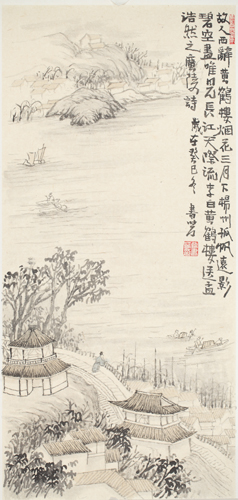 故人西辭黄鶴樓烟花三月下揚州孤帆遠影
碧空盡唯見長江天際流李白黄鶴樓送孟
浩然之廣陵詩 歲在癸巳冬